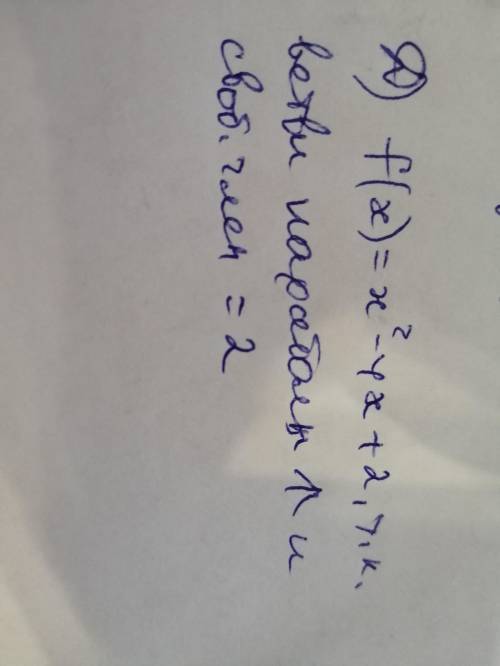 Д) f(x) = x² - 4x + 2, т.к.
ветви параболы ↑ и
своб. член = 2